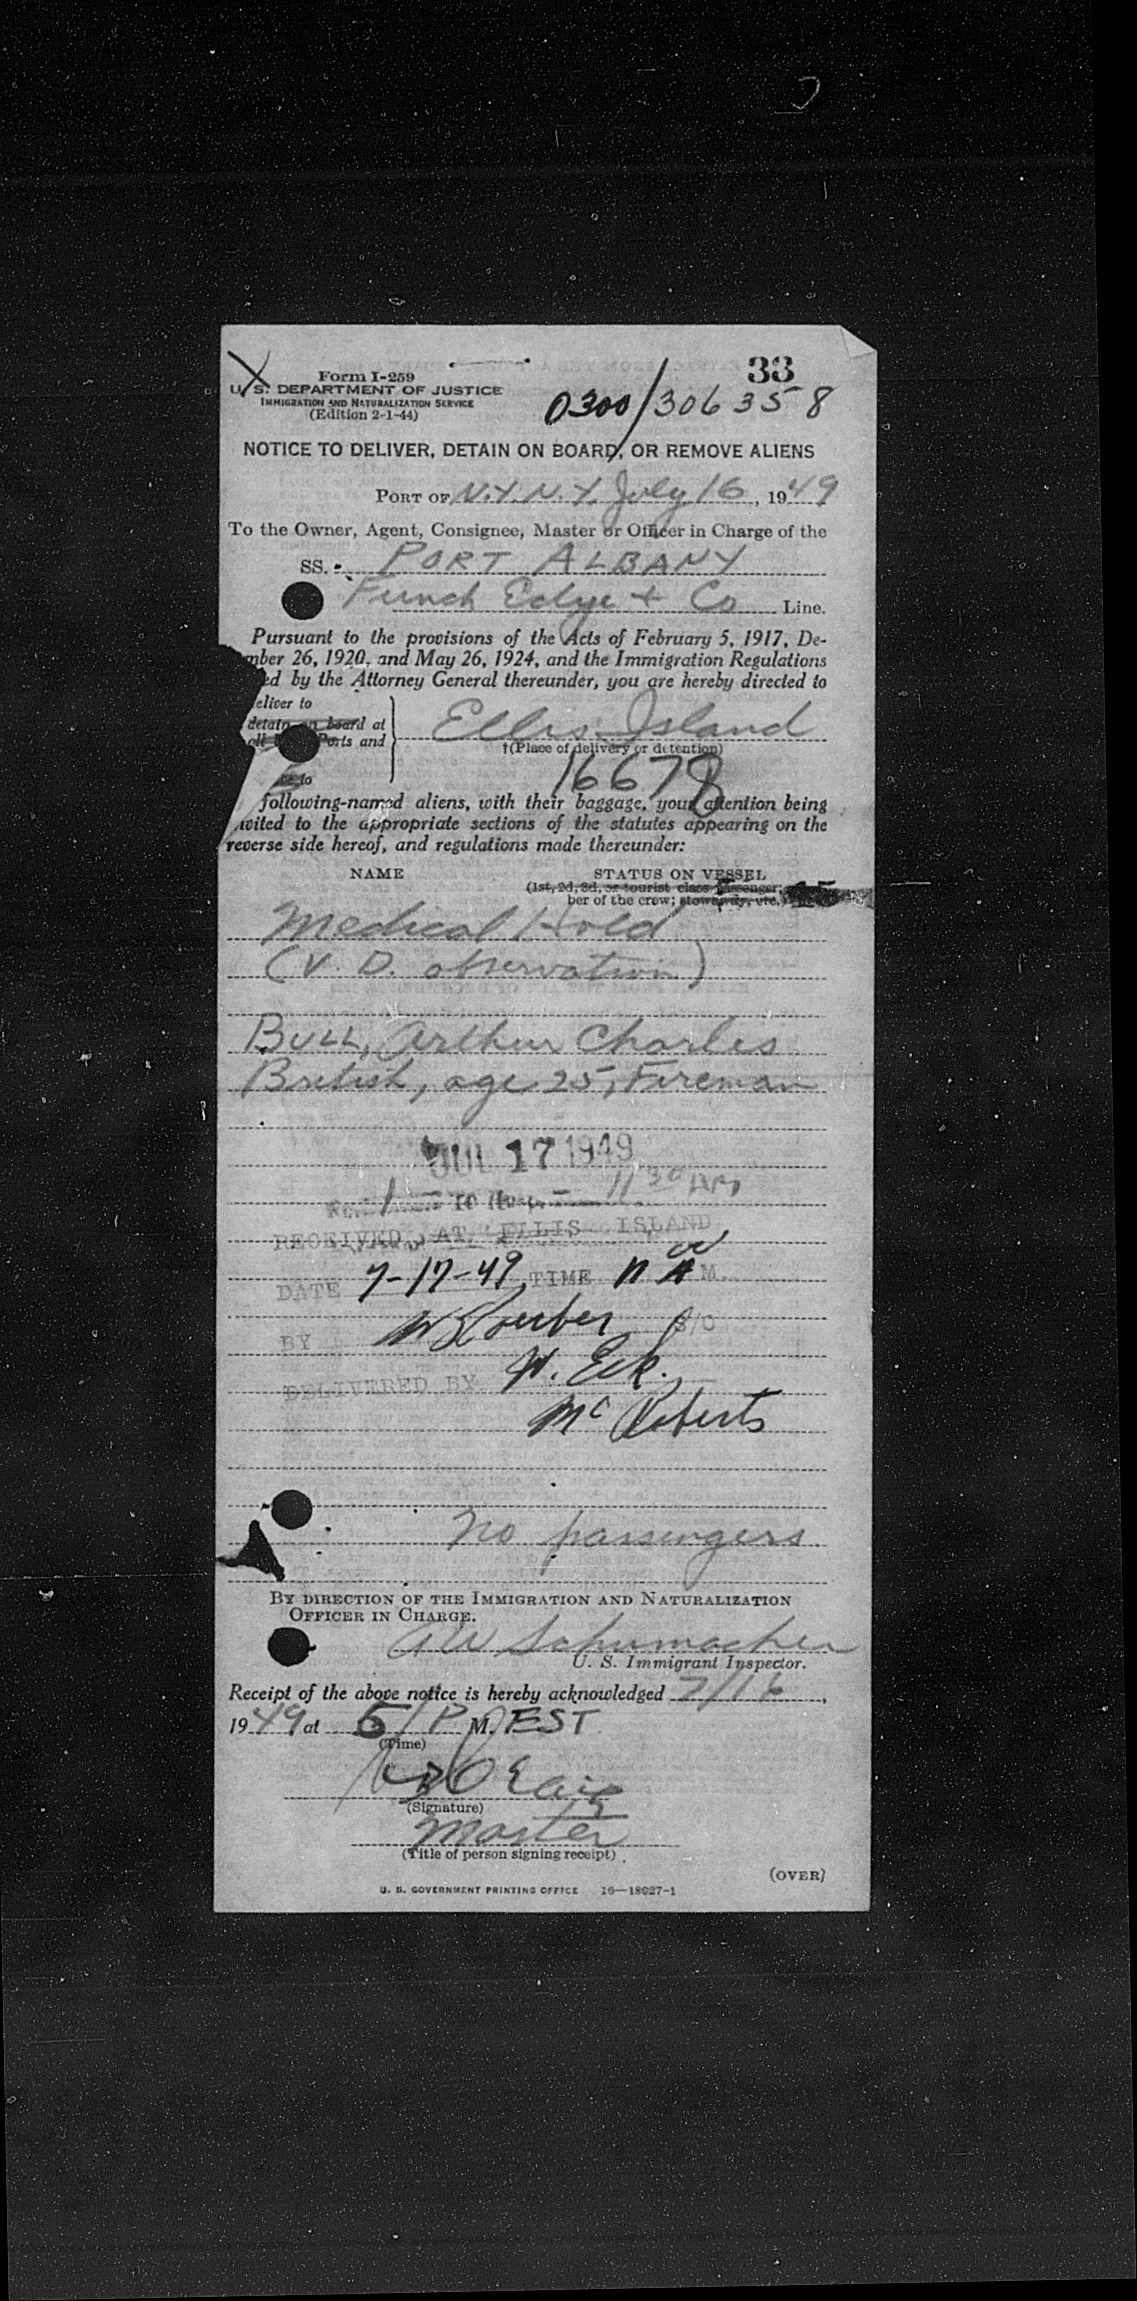 33
Form I-259
U. S. DEPARTMENT OF JUSTICE
IMMIGRATION AND NATURALIZATION SERVICE
(Edition 2-1-44)
0300/306358
NOTICE TO DELIVER, DETAIN ON BOARD, OR REMOVE ALIENS
PORT OF N.Y. N.Y. July 16, 1949
To the Owner, Agent, Consignee, Master or Officer in Charge of the
SS. PORT ALBANY
Funch Edye + Co Line.
Pursuant to the provisions of the Acts of February 5, 1917, De-
mber 26, 1920, and May 26, 1924, and the Immigration Regulations
ed by the Attorney General thereunder, you are hereby directed to
eliver to
detain on board at
Ports and
to
Ellis Island
†(Place of delivery or detention)
16678
following-named aliens, with their baggage, your attention being
vited to the appropriate sections of the statutes appearing on the
reverse side hereof, and regulations made thereunder:
NAME STATUS ON VESSEL
(1st, 2d, 3d, or tourist class passenger;
ber of the crew; stowaway, etc.)
Medical Hold
(V. D. observation)
BULL, Arthur Charles
British, age 25, Fireman
JUL 17 1949
1 11 30 AM
RECEIVED AT ELLIS ISLAND
DATE 7-17-49 TIME M.
BY
DELIVERED BY W. Eck.
McRoberts
No passengers
BY DIRECTION OF THE IMMIGRATION AND NATURALIZATION
OFFICER IN CHARGE.
A W Schumacher
U. S. Immigrant Inspector.
Receipt of the above notice is hereby acknowledged 7/16,
1949 at 5/P M. EST
(Time)
(Signature)
Master
(Title of person signing receipt)
(OVER)
U. S. GOVERNMENT PRINTING OFFICE 16—18027-1